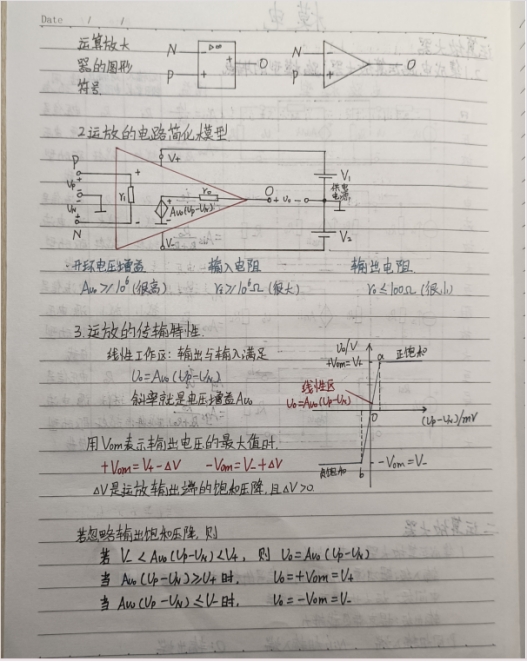 Date / /
运算放大
器的图形
符号.
N ▷∞ + O
P +
N -
P +
O
2.运放的电路简化模型
P
Up
UN
N
ri
V+
ro
Avo(Up-UN)
V-
O
+ Uo -
V1
供电
电源
V2
·开环电压增益 输入电阻 输出电阻
Avo≥10⁶(很高) ri≥10⁶Ω(很大) ro≤100Ω(很小)
3.运放的传输特性.
线性工作区:输出与输入满足
Uo=Avo(Up-UN)
斜率就是电压增益Avo
Uo/V
+Vom=V+
a 正饱和
线性区
Uo=Avo(Up-UN)
O
(Up-UN)/mV
负饱和
b
-Vom=V-
用Vom表示输出电压的最大值时.
+Vom=V+-ΔV -Vom=V-+ΔV
ΔV是运放输出端的饱和压降,且ΔV>0.
若忽略输出饱和压降,则
若 V-<Avo(Up-UN)<V+, 则 Uo=Avo(Up-UN)
当 Avo(Up-UN)≥V+时, Uo=+Vom=V+
当 Avo(Up-UN)≤V-时, Uo=-Vom=V-